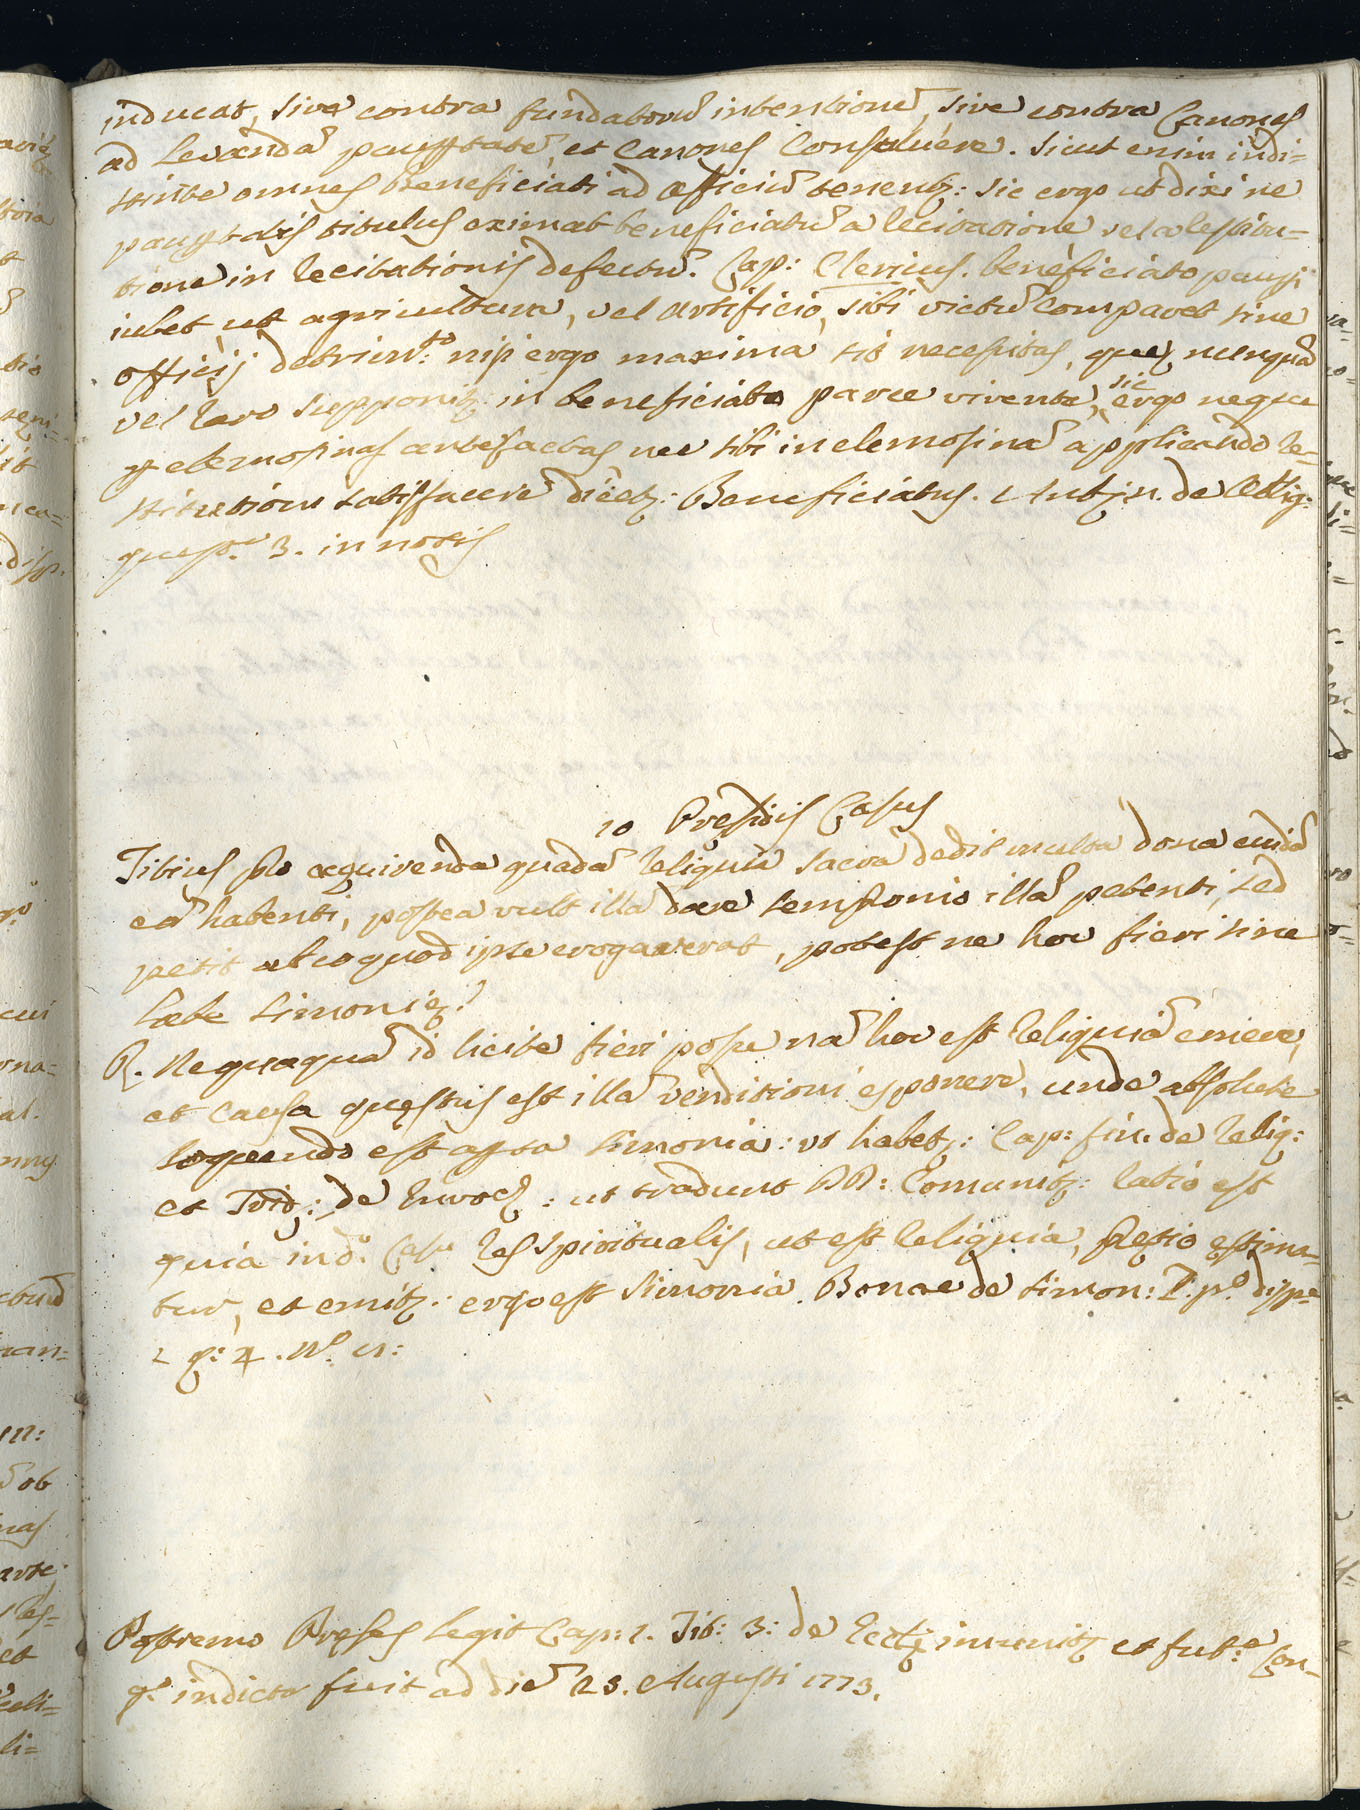 inducat, sive contra fundatorũ intentionẽ, sive contra Canones
ad levandã paupertatẽ, et Canones Consuluére. Sicut enim indi=
stincte omnes Beneficiati ad officiũ tenentꝫ: sic ergo ut dixi ne
paupertatis titulus eximat beneficiatũ a recitatione vel a restitu=
tione in recitationis defectũ. Cap: Clericus. beneficiato pauperi
iubet, ut agricultura, vel artificio, sibi victũ comparet sine
officij detrim:to nisi ergo maxima sit necessitas, quę nunquã
vel raro supponitꝫ in beneficiato parce vivente, sic ergo neque
per elemosinas antefactas nec sibi in elemosinã applicando re=
stitutioni satisfacere dicetꝫ. Beneficiatus.
quęst.e 3. in notis
10 Pręsidis Casus
Titius pro acquirenda quadã Reliquia sacra dedit multa dona cuidã
eã habenti, postea vult illã dare sempronio illã petenti, sed
petit ab eo quod ipse erogaverat, potest ne hoc fieri sine
labe simonię?
R. Nequaquã id licite fieri posse nã hoc est Reliquiã emere,
et causa quęstus est illã venditioni esponere, unde absolute
loquendo est aperta simonia: ut habetꝫ: Cap: fin. de Reliq:
et Trid: de Invoc: ut tradunt DD: Comunitꝫ: ratio est
quia in d.o Casu res spiritualis, ut est Reliquia, prętio ęstima=
tur, et emitꝫ: ergo est Simonia. Bonac de simon: T. p.o disp.e
2 q: 4. N.o 11:
Postremo Pręses legit Cap: 1. Tit: 3: de Eccl imunit et fut:a Con=
g.o indicta fuit ad diẽ 23. Augusti 1773.